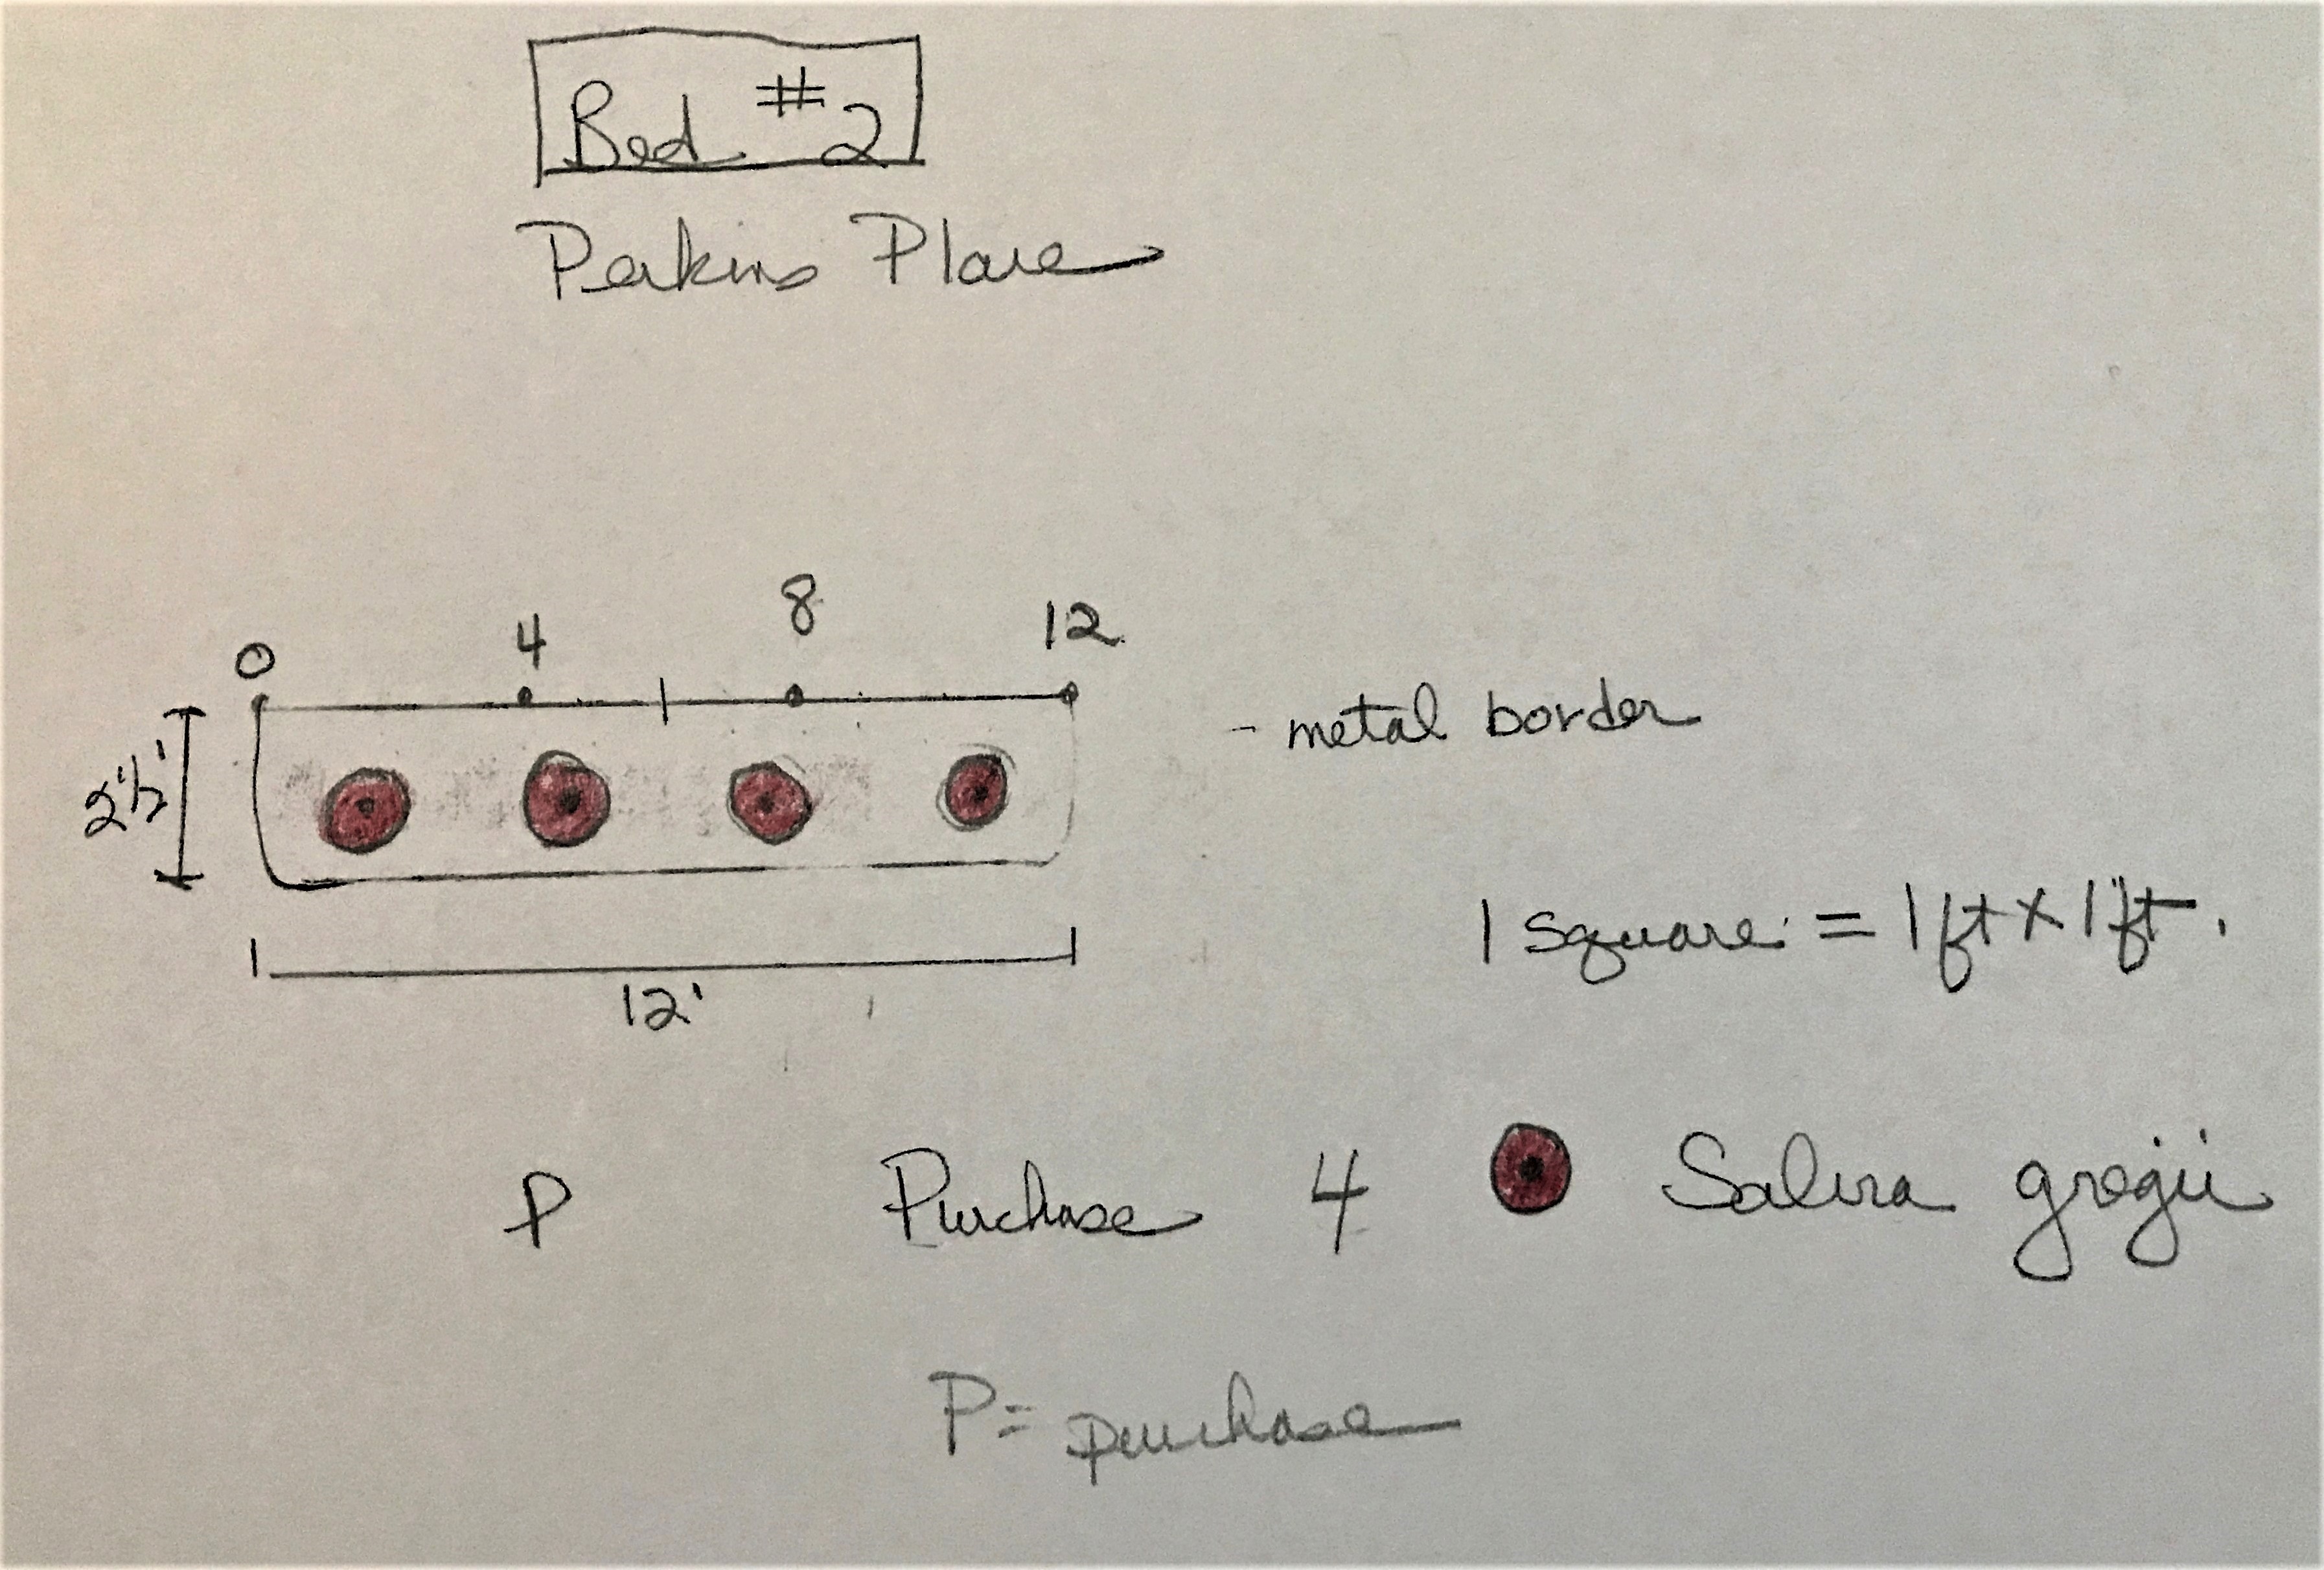 Bed #2
Perkins Place
0 4 8 12
- metal border
2 1/2'
1 square = 1 ft x 1 ft.
12'
P Purchase 4 Salvia gregii
P = purchase